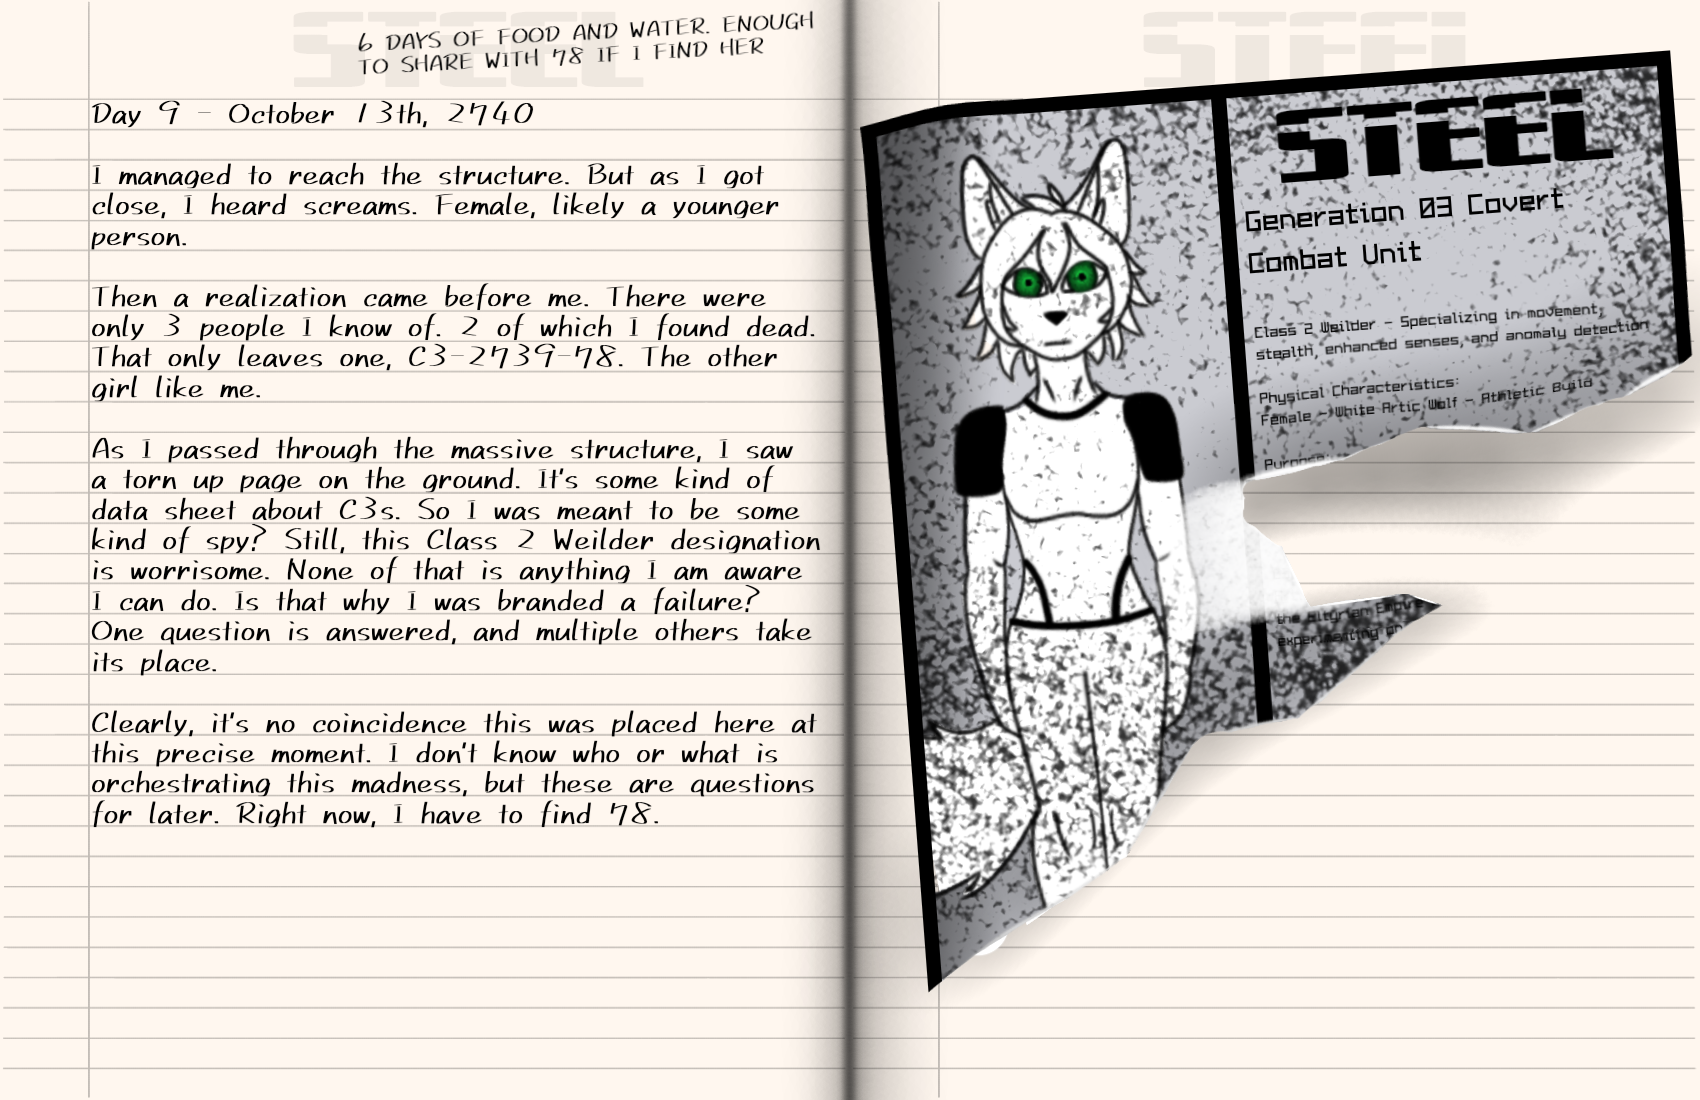 STEEL
6 DAYS OF FOOD AND WATER. ENOUGH
TO SHARE WITH 78 IF I FIND HER
Day 9 - October 13th, 2740
I managed to reach the structure. But as I got
close, I heard screams. Female, likely a younger
person.
Then a realization came before me. There were
only 3 people I know of. 2 of which I found dead.
That only leaves one, C3-2739-78. The other
girl like me.
As I passed through the massive structure, I saw
a torn up page on the ground. It's some kind of
data sheet about C3s. So I was meant to be some
kind of spy? Still, this Class 2 Weilder designation
is worrisome. None of that is anything I am aware
I can do. Is that why I was branded a failure?
One question is answered, and multiple others take
its place.
Clearly, it's no coincidence this was placed here at
this precise moment. I don't know who or what is
orchestrating this madness, but these are questions
for later. Right now, I have to find 78.
STEEL
STEEL
Generation 03 Covert
Combat Unit
Class 2 Weilder - Specializing in movement,
stealth, enhanced senses, and anomaly detection
Physical Characteristics:
Female - White Artic Wolf - Athletic Build
Purpose:
the Empire
experimenting on